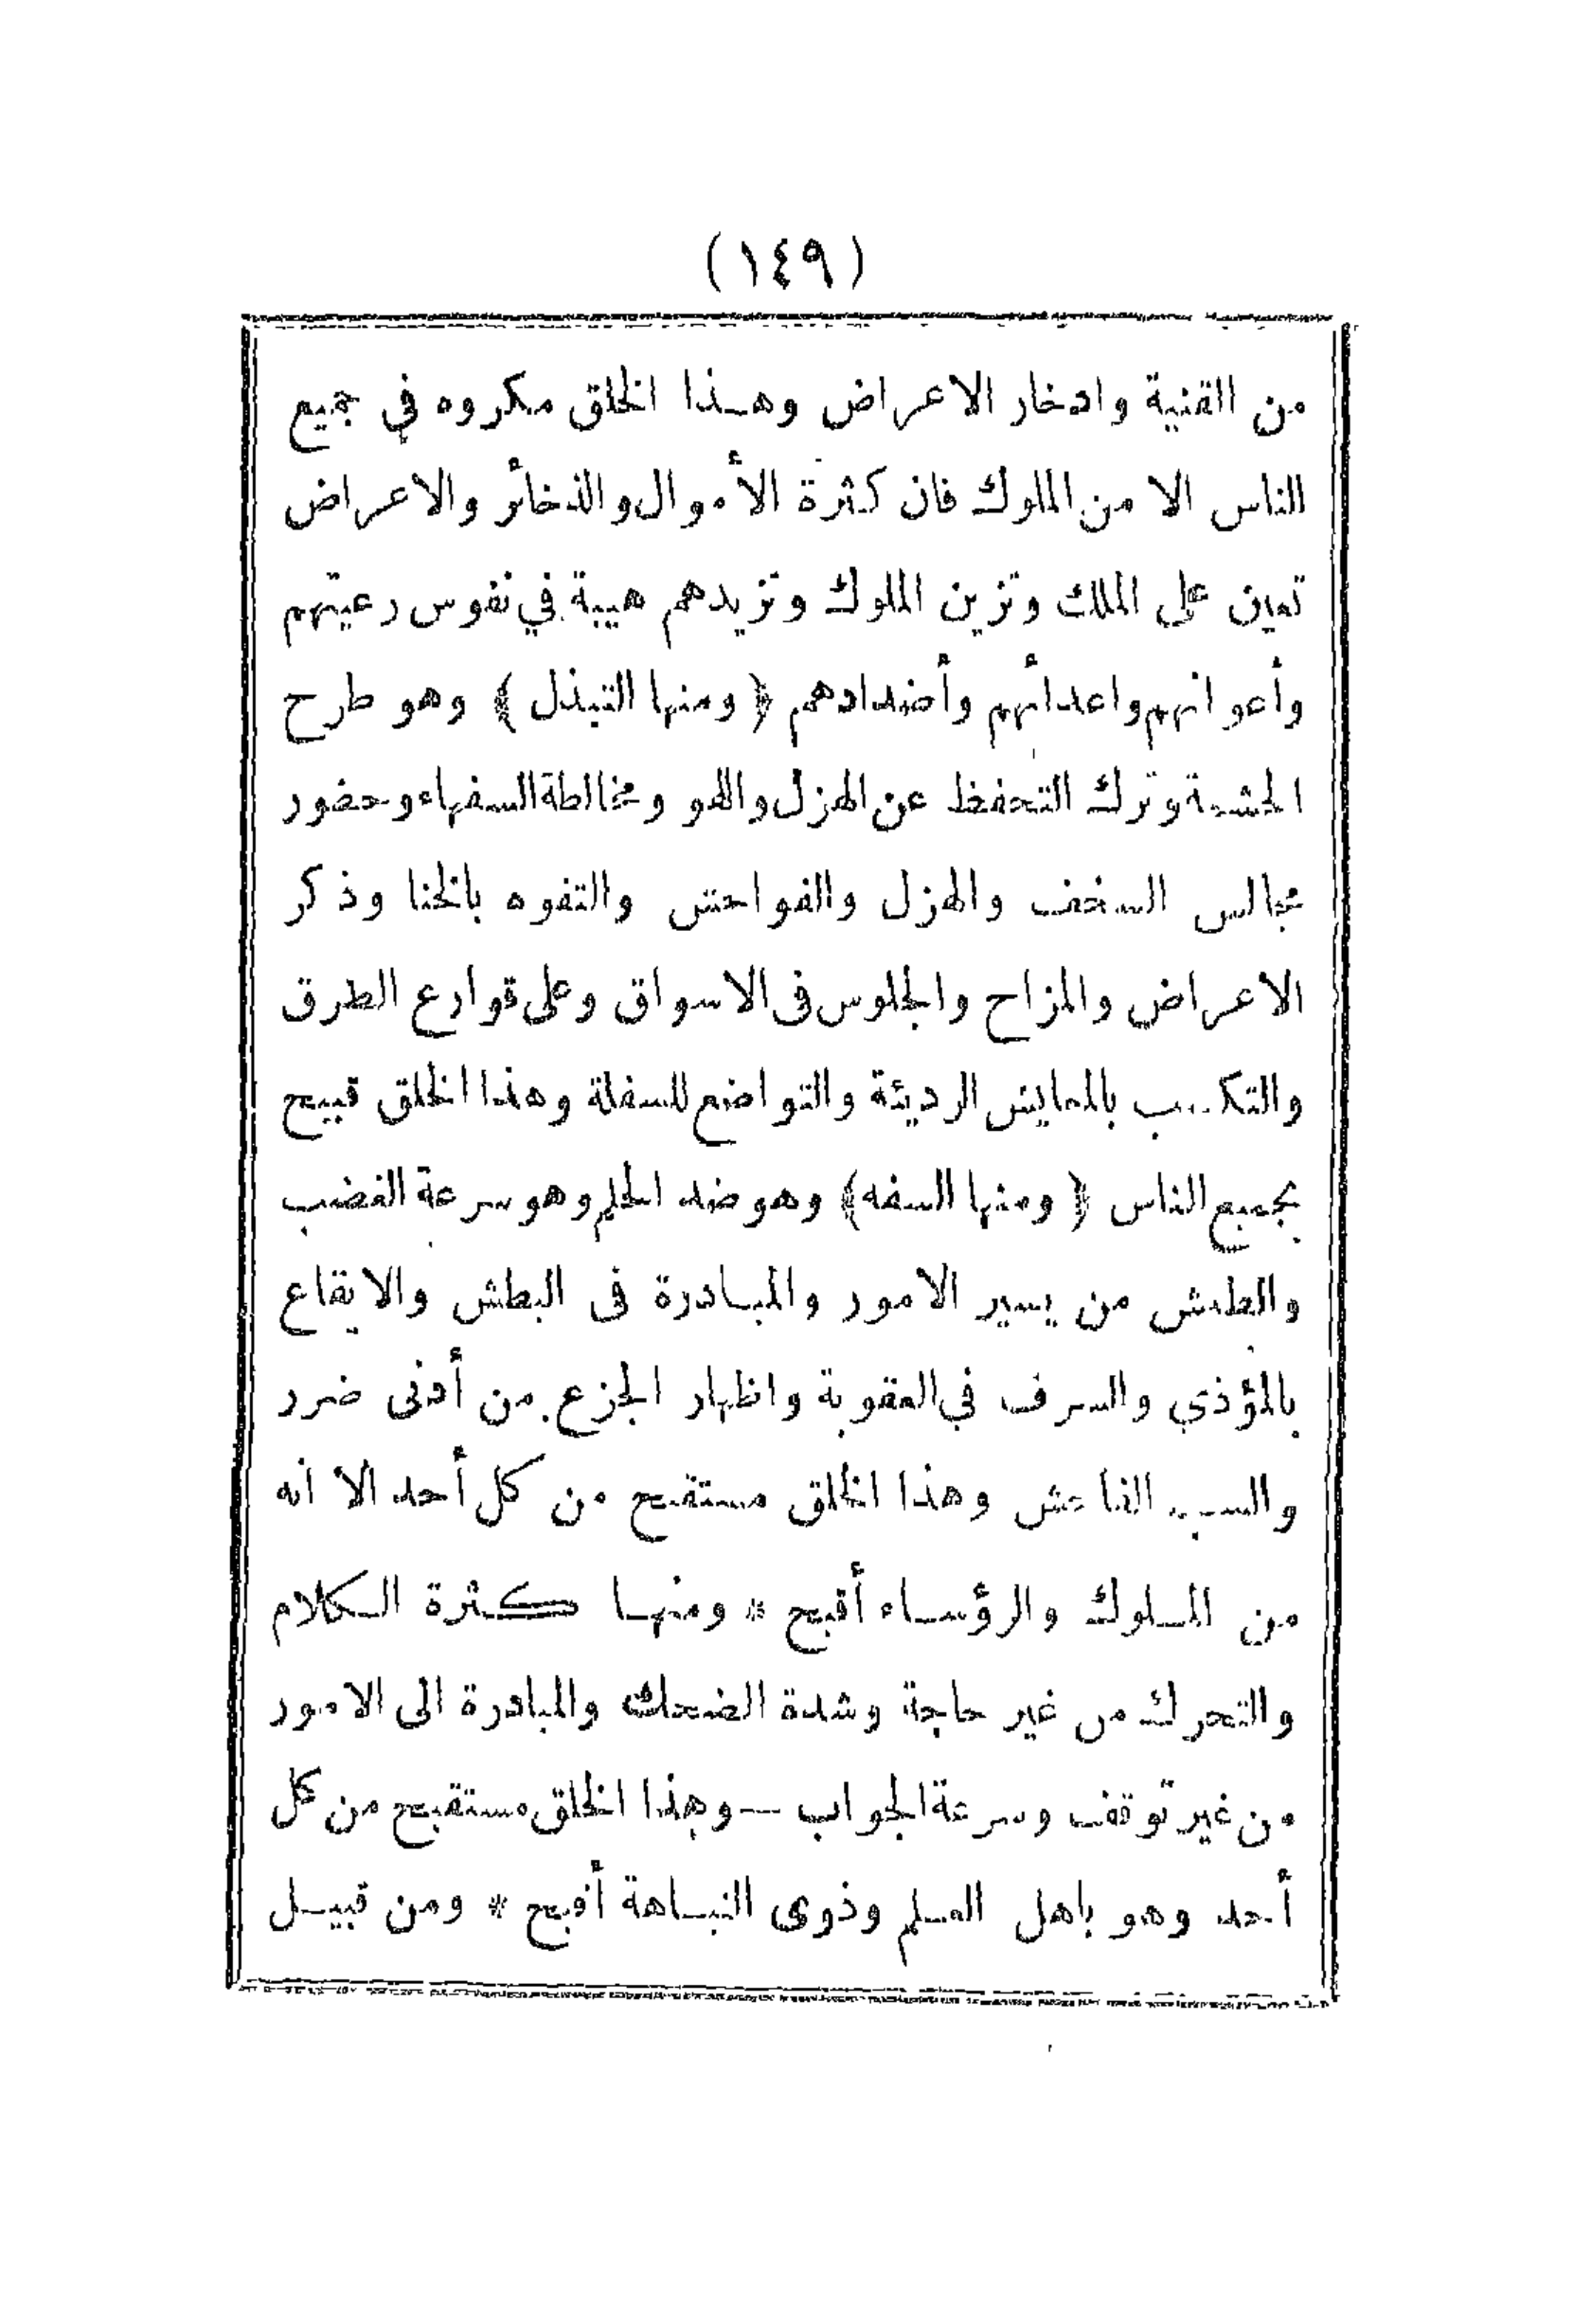 (١٤٩)
من القنية وادخار الاعراض وهذا الخلق مكروه في جميع
الناس الا من الملوك فان كثرة الأموال والذخائر والاعراض
تعين على الملك وتزين الملوك وتزيدهم هيبة في نفوس رعيتهم
وأعوانهم واعدائهم وأضدادهم ﴿ ومنها التبذل ﴾ وهو طرح
الحشمة وترك التحفظ عن الهزل واللهو ومخالطة السفهاء وحضور
مجالس السخف والهزل والفواحش والتفوه بالخنا وذكر
الاعراض والمزاح والجلوس فى الاسواق وعلى قوارع الطرق
والتكسب بالمعايش الرديئة والتواضع للسفلة وهذا الخلق قبيح
بجميع الناس ﴿ ومنها السفه﴾ وهو ضد الحلم وهو سرعة الغضب
والطيش من يسير الامور والمبادرة فى البطش والايقاع
بالمؤذي والسرف في العقوبة واظهار الجزع من أدنى ضرر
والسب الفاحش وهذا الخلق مستقبح من كل أحد الا انه
من الملوك والرؤساء أقبح * ومنها كثرة الكلام
والتحرك من غير حاجة وشدة الضحك والمبادرة الى الامور
من غير توقف وسرعة الجواب — وهذا الخلق مستقبح من كل
أحد وهو باهل العلم وذوى النباهة أقبح * ومن قبيل